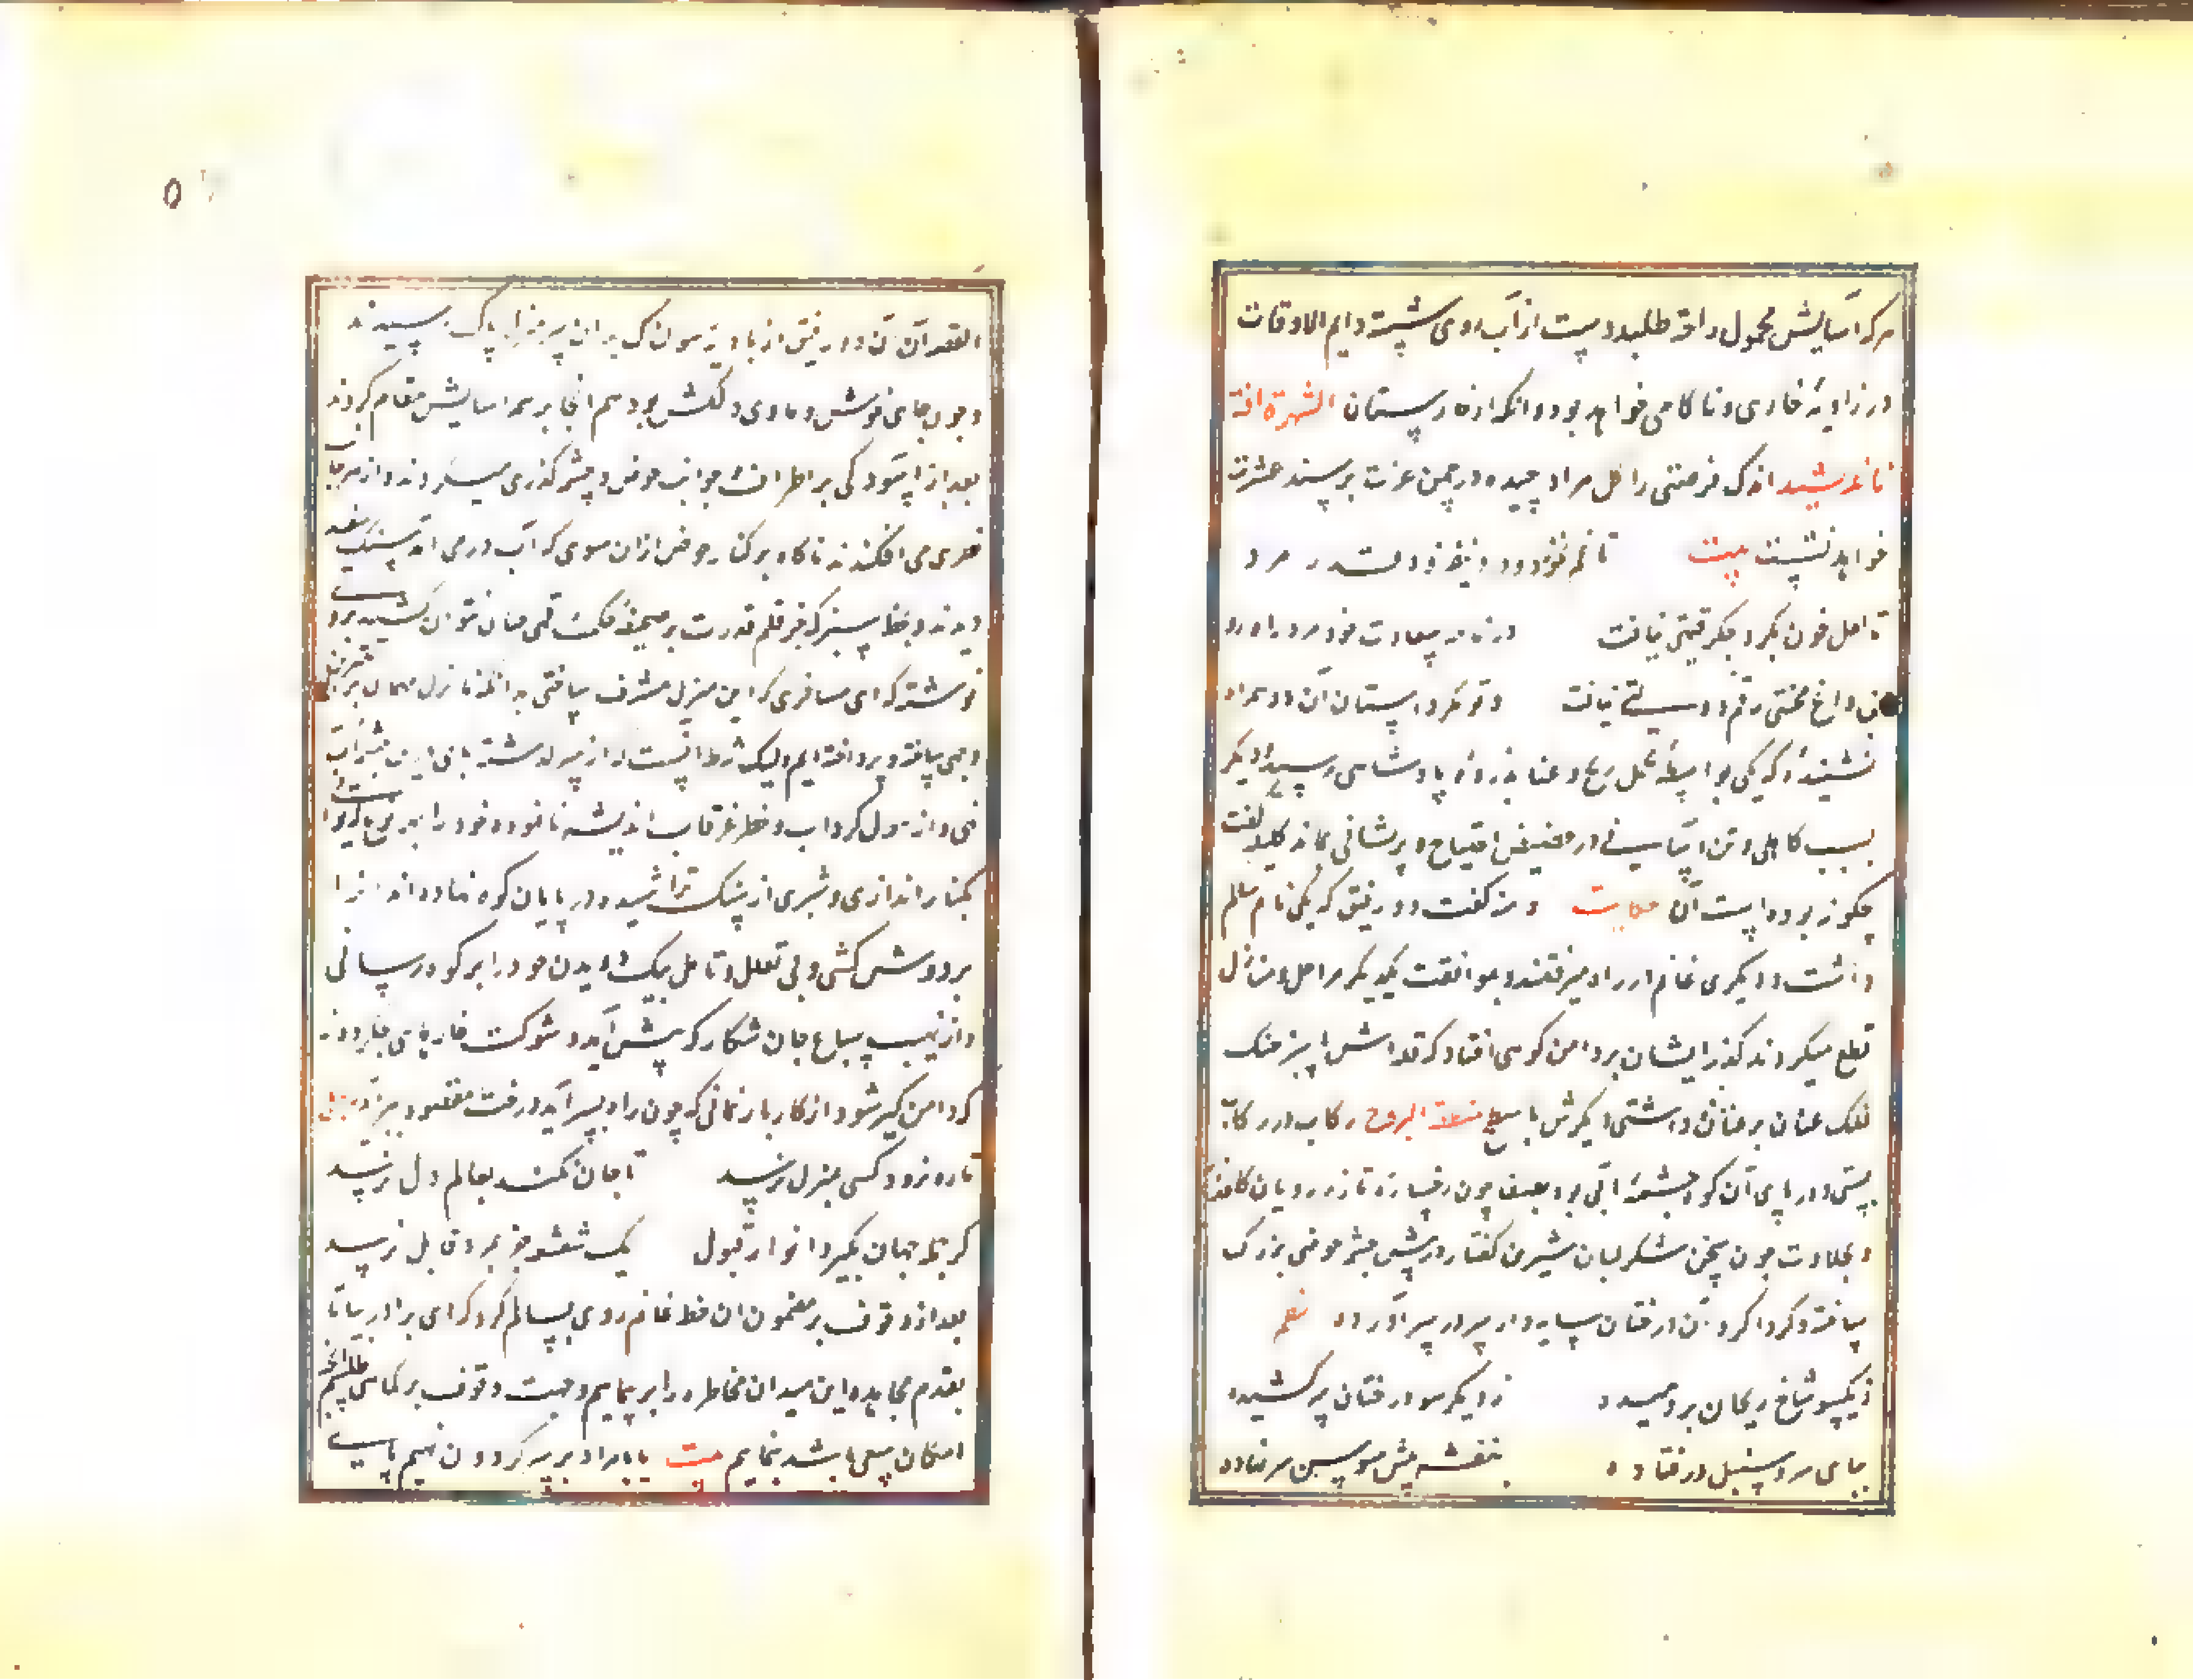 هرکه آسایش خمول راحة طلبد دست از آبروی شسته دایم الاوقات
در زاویهٔ خواری و ناکامی خواهد بود و انکه از خارستان الشهرة افة
نا اندیشید اندک فرصتی را کل مراد چیده در چمن عزت بر مسند عشرت
خواهد نشست بیت تا غم نخورد و درد نیفزود قدر مرد
تا لعل خون نکرد جکر قیمتی نیافت
بی داغ محنتی رقم دولتی نیافت
نشنیدهٔ که یکی بواسطهٔ تحمل رنج و عنا بذروهٔ پادشاهی رسید و دیکر
بسبب کاهلی و تن اسانی در حضیض احتیاج و پریشانی بماند کلیله کفت
چکونه بوده است آن حکایت دمنه کفت دو رفیق که یکی نام سالم
داشت و دیکری غانم در راه میرفتند و بموافقت یکدیکر مراحل و منازل
قطع میکردند کذر ایشان بر دامن کوهی افتاد که قله اش با سبز خنک
فلک عنان بر عنان داشتی و کمرش با سطح منطقة البروج رکاب در رکاب
بستی و در پای آن کوه چشمهٔ آبی بود بصفا چون رخسارهٔ تازه رویان کلعذار
و بحلاوت چون سخن شکر لبان شیرین کفتار در پیش چشمه حوضی بزرک
ساخته و کرداکرد آن درختان سایه دار سر در سر آورده نظم
ز یکسو شاخ ریحان بر دمیده ز دیکر سو درختان سر کشیده
بپای سرو سنبل در فتاده بنفشه پیش سوسن سر نهاده
القصه آن دو رفیق از بادیهٔ هولناک بدان سر منزل پاک رسیدند
و چون جای خوش و ماوی دلکش بود هم انجا بر سم اسایش مقام کردند
بعد از اسودکی بر اطراف و جوانب حوض و چشمه کذری میکردند و از هر جانب
نظری می افکندند ناکاه بر کنار حوض ازان سوی که آب در می آمد سنکی سفید
دیدند و بخط سبز که جز قلم قدرت بر صحیفهٔ حکمت رقمی چنان نتوان کشید برو
نوشته که ای مسافری که این منزل را مشرف ساختی بدانکه نازل مهمان بر
وجهی ساخته و پرداخته ایم ولیک شرط انست که از سر کذشته پای این چشمه آب
نهی و از هول کرداب و خطر غرقاب اندیشه نا نموده خود را بهر نوع که توانی
بکنار اندازی و شیری از سنک تراشیده در پایان کوه نهاده اند انرا
بر دوش کشی و بی تعلل و تامل بیک دویدن خود را بر کوه رسانی
و از نهیب سباع جان شکار که پیش آید و شوکت خار پای جکر دوز
که دامن کیر شود از کار باز نمانی که چون راه بسر آید درخت مقصود ببر آید
تا ره نرود کسی بمنزل نرسد تا جان نکند بعالم دل نرسد
کر جملهٔ جهان بکیرد انوار قبول یک شعشعه جز بمرد قابل نرسد
بعد از وقوف بر مضمون ان خط غانم روی بسالم کرد که ای برادر بیا تا
بقدم مجاهده این میدان مخاطره را بر پیماییم و جهت وقوف بر کماهی طلسم آنچه
امکان سعی باشد نماییم بیت یا بامراد بر سر کردون نهیم پای